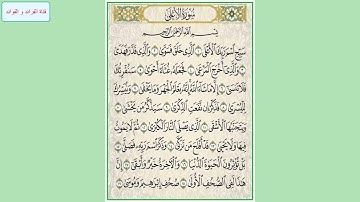 قناة الفرائد و الفوائد
سُورَةُ الأَعْلَى
بِسْمِ اللَّهِ الرَّحْمَٰنِ الرَّحِيمِ
سَبِّحِ ٱسْمَ رَبِّكَ ٱلْأَعْلَى ١ ٱلَّذِى خَلَقَ فَسَوَّىٰ ٢ وَٱلَّذِى قَدَّرَ فَهَدَىٰ
٣ وَٱلَّذِىٓ أَخْرَجَ ٱلْمَرْعَىٰ ٤ فَجَعَلَهُۥ غُثَآءً أَحْوَىٰ ٥ سَنُقْرِئُكَ
فَلَا تَنسَىٰٓ ٦ إِلَّا مَا شَآءَ ٱللَّهُ إِنَّهُۥ يَعْلَمُ ٱلْجَهْرَ وَمَا يَخْفَىٰ ٧ وَنُيَسِّرُكَ
لِلْيُسْرَىٰ ٨ فَذَكِّرْ إِن نَّفَعَتِ ٱلذِّكْرَىٰ ٩ سَيَذَّكَّرُ مَن يَخْشَىٰ ١٠
وَيَتَجَنَّبُهَا ٱلْأَشْقَى ١١ ٱلَّذِى يَصْلَى ٱلنَّارَ ٱلْكُبْرَىٰ ١٢ ثُمَّ لَا يَمُوتُ
فِيهَا وَلَا يَحْيَىٰ ١٣ قَدْ أَفْلَحَ مَن تَزَكَّىٰ ١٤ وَذَكَرَ ٱسْمَ رَبِّهِۦ فَصَلَّىٰ ١٥
بَلْ تُؤْثِرُونَ ٱلْحَيَوٰةَ ٱلدُّنْيَا ١٦ وَٱلْآخِرَةُ خَيْرٌ وَأَبْقَىٰٓ ١٧ إِنَّ
هَٰذَا لَفِى ٱلصُّحُفِ ٱلْأُولَىٰ ١٨ صُحُفِ إِبْرَٰهِيمَ وَمُوسَىٰ ١٩